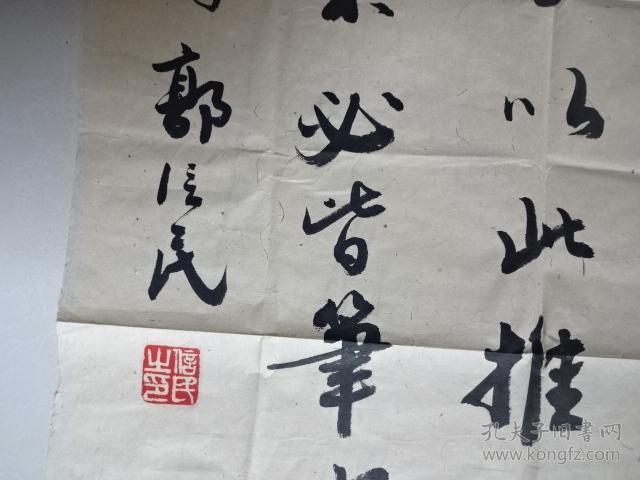 以此推
必皆筆
郭信民
信民之印
孔夫子旧书网
kongfz.com